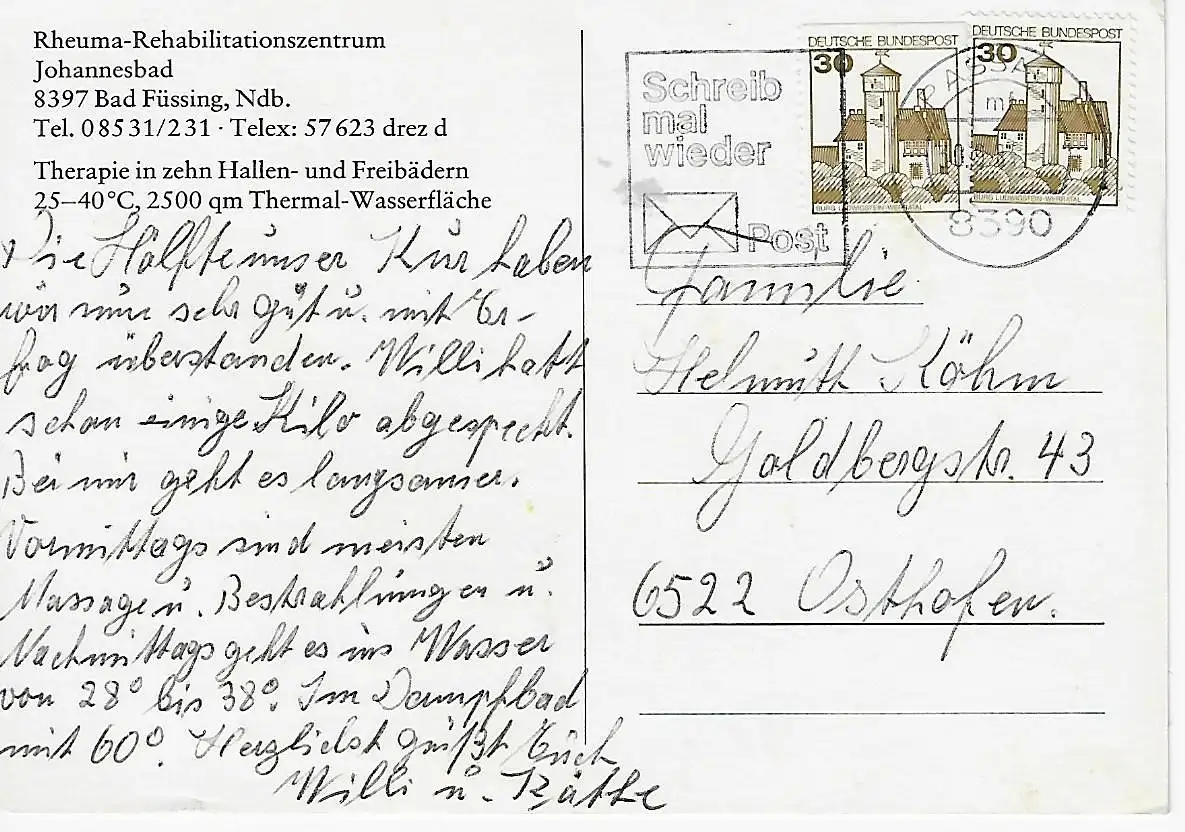 Rheuma-Rehabilitationszentrum
Johannesbad
8397 Bad Füssing, Ndb.
Tel. 0 85 31/2 31 · Telex: 57 623 drez d
Therapie in zehn Hallen- und Freibädern
25–40 °C, 2500 qm Thermal-Wasserfläche
Die Hälfte unser Kur haben
wir nun sehr gut u. mit Er-
fog überstanden. Willi hatt
schon einige Kilo abgespeckt.
Bei mir geht es langsamer.
Vormittags sind meisten
Massage u. Bestrahlungen u.
Nachmittags geht es ins Wasser
von 28° bis 38°. Im Dampfbad
mit 60°. Herzlichst grüßt Euch
Willi u. Käthe
Schreib
mal
wieder
Post
DEUTSCHE BUNDESPOST
30
BURG LUDWIGSTEIN · WERRATAL
DEUTSCHE BUNDESPOST
30
BURG LUDWIGSTEIN · WERRATAL
PASSA
8390
Familie
Helmuth Köhm
Goldbergstr. 43
6522 Osthofen.